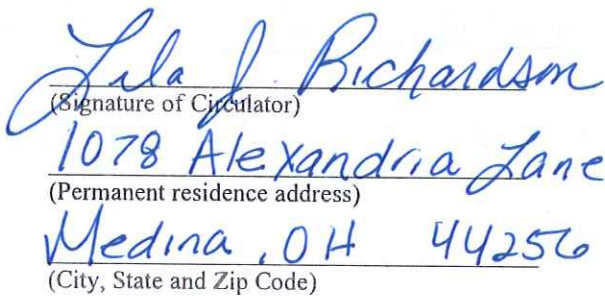 Lila J. Richardson
(Signature of Circulator)
1078 Alexandria Lane
(Permanent residence address)
Medina, OH 44256
(City, State and Zip Code)